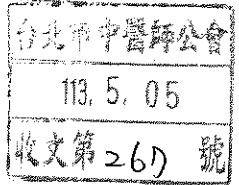 台北市中醫師公會
113. 5. 05
收文第 267 號